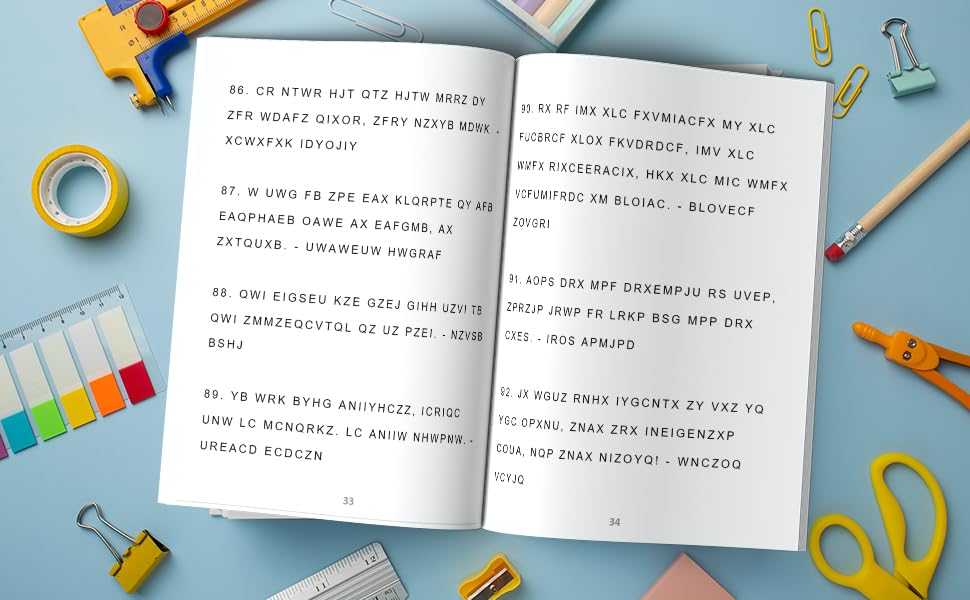 86. CR NTWR HJT QTZ HJTW MRRZ DY
ZFR WDAFZ QIXOR, ZFRY NZXYB MDWK. -
XCWXFXK IDYOJIY
87. W UWG FB ZPE EAX KLQRPTE QY AFB
EAQPHAEB OAWE AX EAFGMB, AX
ZXTQUXB. - UWAWEUW HWGRAF
88. QWI EIGSEU KZE GZEJ GIHH UZV! TB
QWI ZMMZEQCVTQL QZ UZ PZEI. - NZVSB
BSHJ
89. YB WRK BYHG ANIIYHCZZ, ICRIQC
UNW LC MCNQRKZ. LC ANIIW NHWPNW. -
UREACD ECDCZN
33
90. RX RF IMX XLC FXVMIACFX MY XLC
FUCBRCF XLOX FKVDRDCF, IMV XLC
WMFX RIXCEERACIX, HKX XLC MIC WMFX
VCFUMIFRDC XM BLOIAC. - BLOVECF
ZOVGRI
91. AOPS DRX MPF DRXEMPJU RS UVEP,
ZPRZJP JRWP FR LRKP BSG MPP DRX
CXES. - IROS APMJPD
92. JX WGUZ RNHX IYGCNTX ZY VXZ YQ
YGC OPXNU, ZNAX ZRX INEIGENZXP
COUA, NQP ZNAX NIZOYQ! - WNCZOQ
VCYJQ
34
11
12